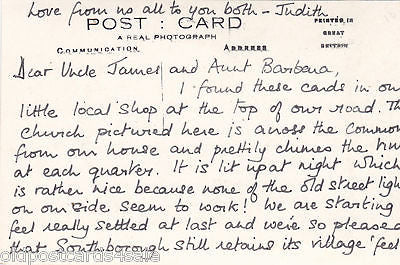 Love from us all to you both - Judith
POST : CARD
A REAL PHOTOGRAPH
PRINTED IN
GREAT
BRITAIN
COMMUNICATION
ADDRESS
Dear Uncle James and Aunt Barbara,
I found these cards in our
little local shop at the top of our road. The
church pictured here is across the common
from our house and prettily chimes the time
at each quarter. It is lit up at night which
is rather nice because none of the old street light
on our side seem to work! We are starting
feel really settled at last and we're so pleased
that Southborough still retains its village 'feel
oldpostcards4sale